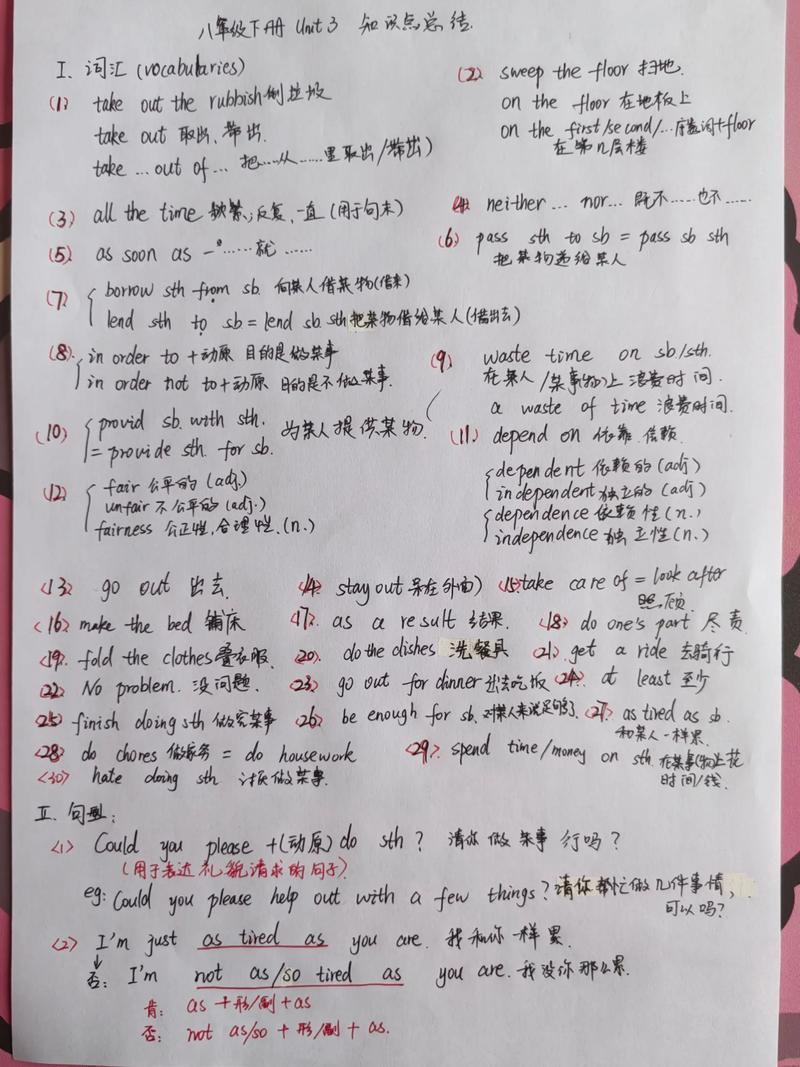 八年级下册 Unit 3 知识点总结.
I. 词汇 (vocabularies)
(1) take out the rubbish 倒垃圾
take out 取出、带出.
take ... out of ... 把......从......里取出/带出)
(2) sweep the floor 扫地.
on the floor 在地板上
on the first/second/... 序数词+floor
在第几层楼
(3) all the time 频繁;反复、一直 (用于句末)
(4) neither ... nor... 既不......也不......
(5) as soon as 一......就......
(6) pass sth to sb = pass sb sth
把某物递给某人
(7) borrow sth from sb. 向某人借某物(借来)
lend sth to sb = lend sb. sth 把某物借给某人(借出去)
(8) in order to +动原 目的是做某事
in order not to+动原 目的是不做某事.
(9) waste time on sb/sth.
在某人/某事(物)上浪费时间.
a waste of time 浪费时间.
(10) provid sb. with sth.
= provide sth. for sb. 为某人提供某物.
(11) depend on 依靠.信赖.
dependent 依赖的(adj)
independent 独立的(adj)
dependence 依赖性(n.)
independence 独立性(n.)
(12) fair 公平的 (adj.)
unfair 不公平的(adj.)
fairness 公正性,合理性.(n.)
<13> go out 出去.
<14> stay out 呆在外面)
<15> take care of = look after
照顾
<16> make the bed 铺床
<17> as a result 结果.
<18> do one's part 尽责
<19> fold the clothes 叠衣服.
<20> do the dishes 洗餐具
<21> get a ride 去骑行
<22> No problem. 没问题.
<23> go out for dinner 出去吃饭
<24> at least 至少
<25> finish doing sth 做完某事
<26> be enough for sb. 对某人来说足够了.
<27> as tired as sb.
和某人一样累.
<28> do chores 做家务 = do housework
<29> spend time/money on sth. 在某事(物)上花
时间/钱.
<30> hate doing sth 讨厌做某事.
II. 句型:
<1> Could you please +(动原) do sth? 请你做某事行吗?
(用于表达礼貌请求的句子)
eg: Could you please help out with a few things? 请你帮忙做几件事情,
可以吗?
<2> I'm just as tired as you are. 我和你一样累.
否: I'm not as/so tired as you are. 我没你那么累.
肯: as +形/副+as
否: not as/so + 形/副 + as.